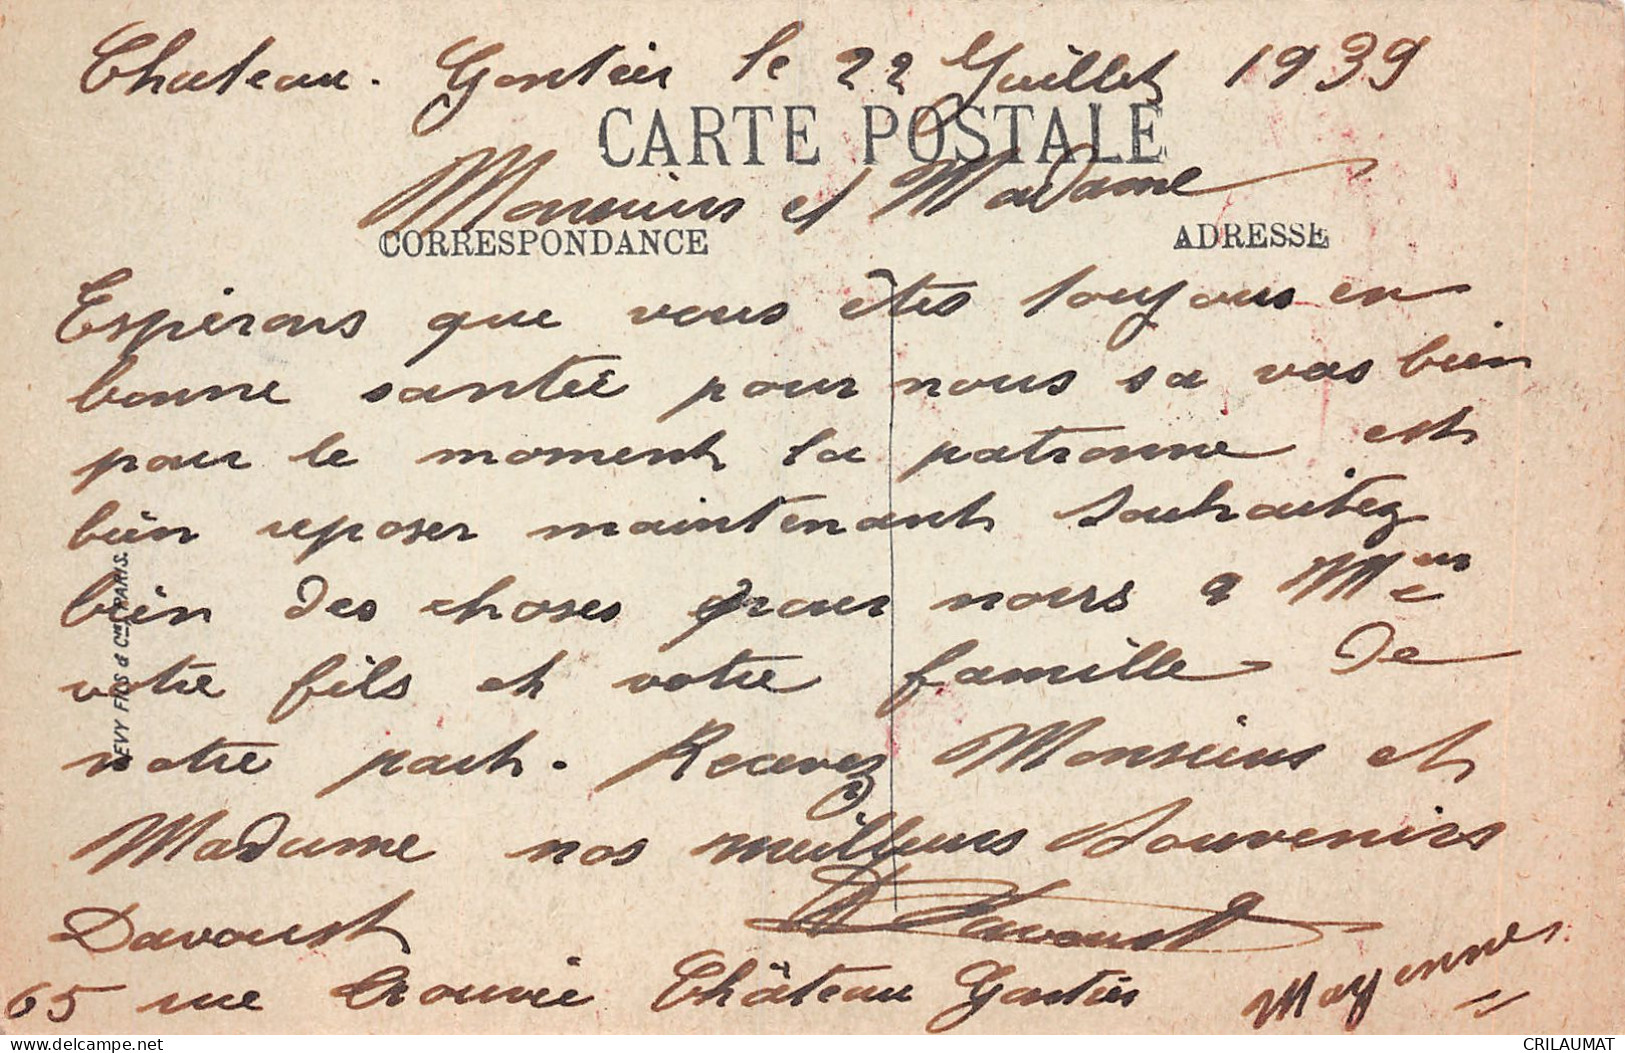 Chateau. Gontier le 22 Juillet 1939
CARTE POSTALE
Monsieurs et Madame
CORRESPONDANCE
ADRESSE
Espérons que vous êtes toujours en
bonne santée pour nous sa vas bien
pour le moment la patronne est
bien reposer maintenant souhaitez
bien des choses pour nous a Mr
votre fils et votre famille de
notre part. Recevez Monsieurs et
Madame nos meilleurs souvenirs
Davoust
Davoust
65 rue Château Gontier Mayenne
LEVY FILS & Cie PARIS.
delcampe.net
CRILAUMAT